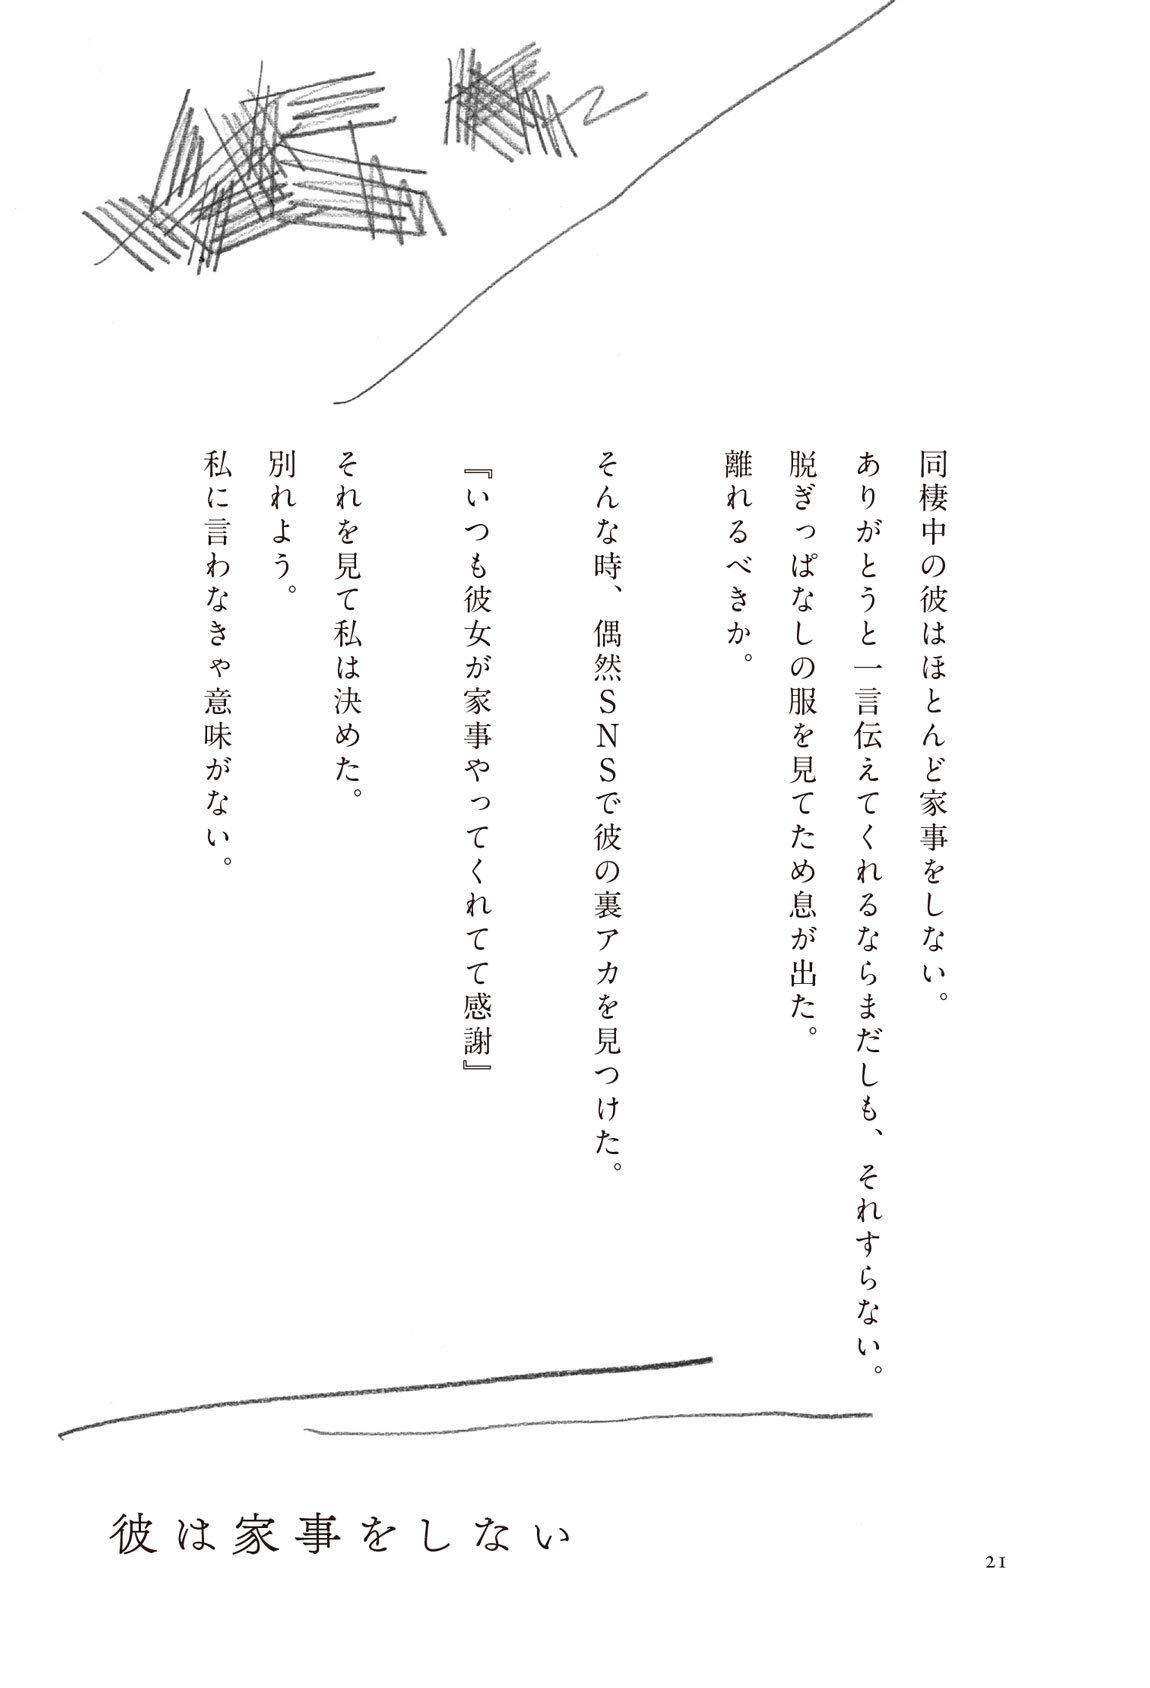 同棲中の彼はほとんど家事をしない。
ありがとうと一言伝えてくれるならまだしも、それすらない。
脱ぎっぱなしの服を見てため息が出た。
離れるべきか。
そんな時、偶然SNSで彼の裏アカを見つけた。
『いつも彼女が家事やってくれてて感謝』
それを見て私は決めた。
別れよう。
私に言わなきゃ意味がない。
彼は家事をしない
21